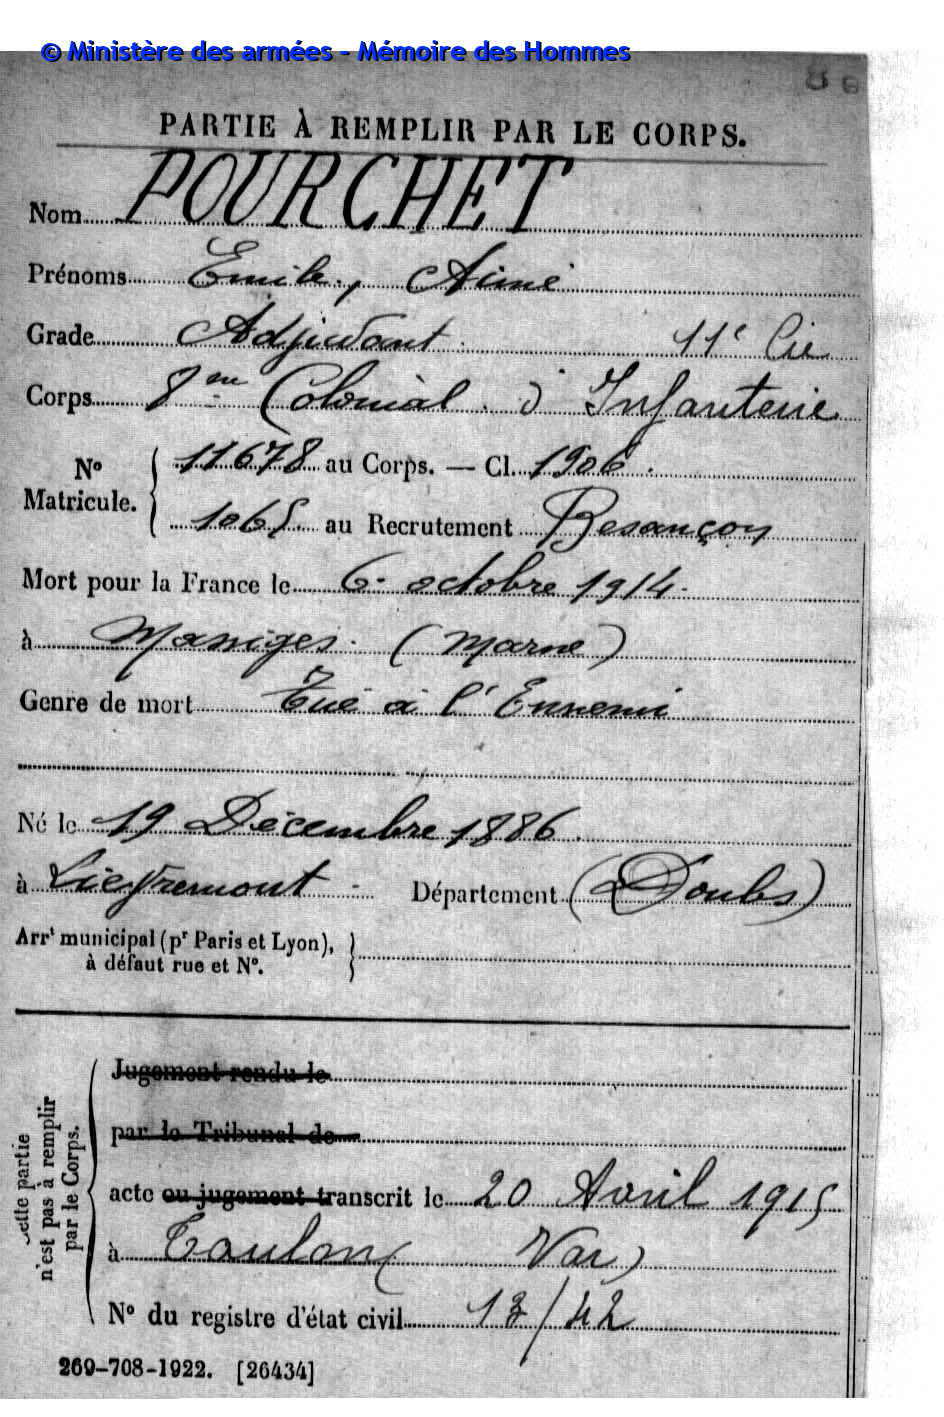 © Ministère des armées - Mémoire des Hommes
PARTIE À REMPLIR PAR LE CORPS.
Nom POURCHET
Prénoms Emile, Aimé
Grade Adjudant 11e Cie
Corps 8me Colonial d'Infanterie
No Matricule. { 11678 au Corps. — Cl. 1906.
1065 au Recrutement Besançon
Mort pour la France le 6 octobre 1914.
à Massiges. (Marne)
Genre de mort Tué à l'Ennemi
Né le 19 Décembre 1886.
à Lievremont - Département (Doubs)
Arrt municipal (pr Paris et Lyon), }
à défaut rue et No.
Cette partie n'est pas à remplir par le Corps.
Jugement rendu le
par le Tribunal de
acte ou jugement transcrit le 20 Avril 1915
à Toulon (Var)
No du registre d'état civil 13/42
269-708-1922. [26434]